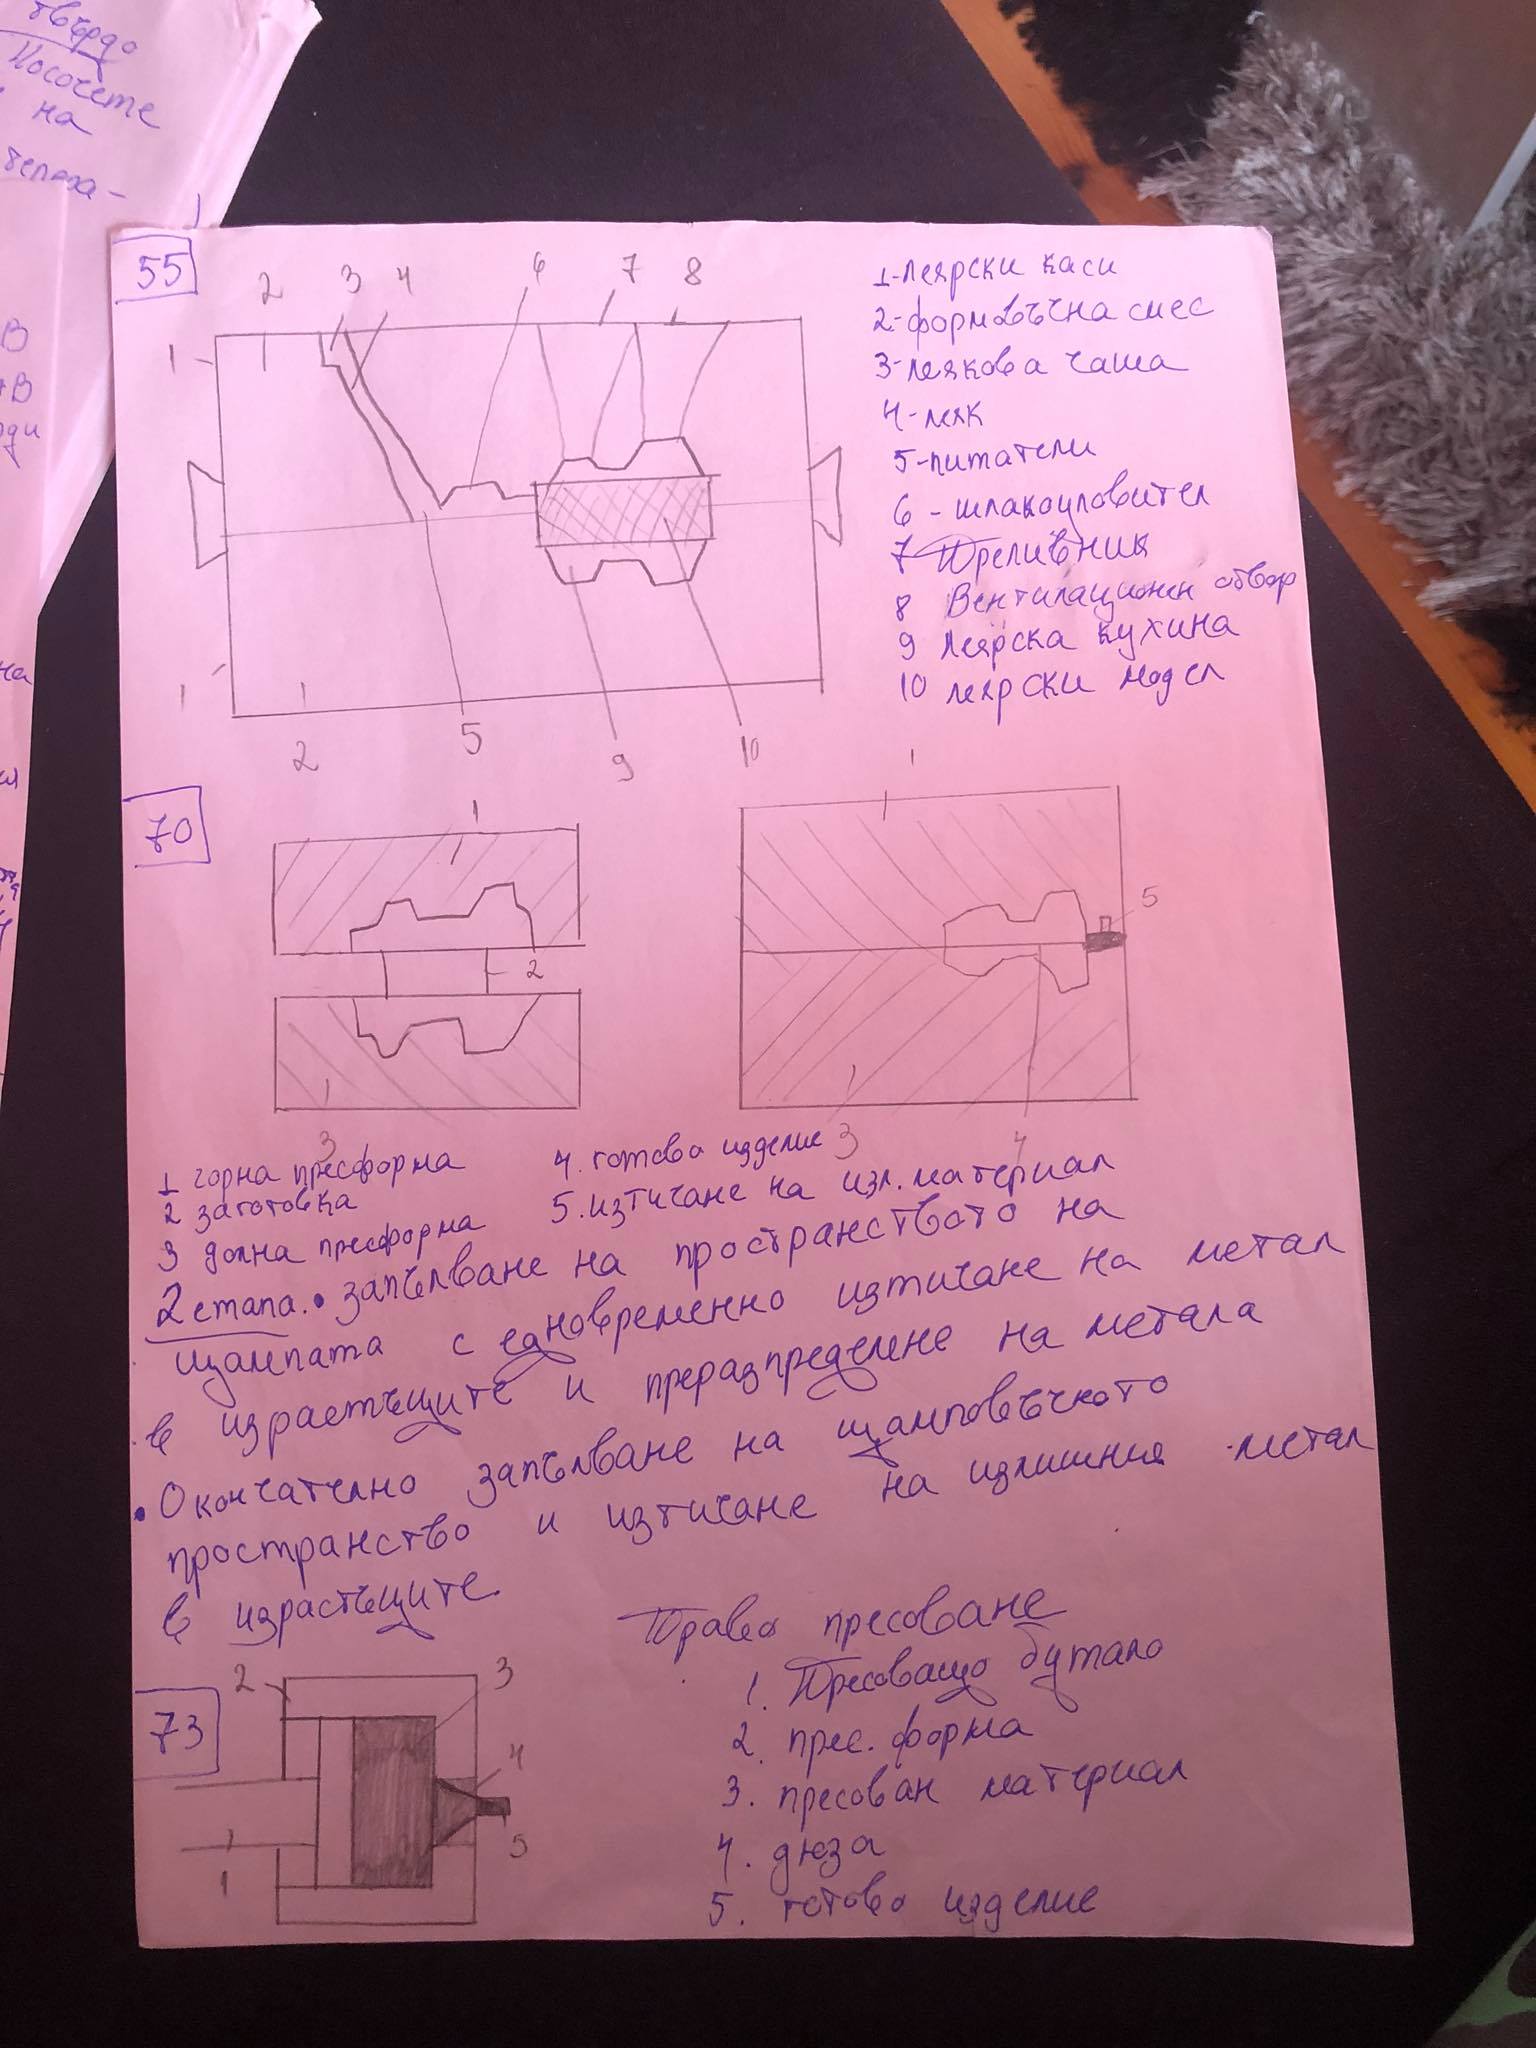 твърдо
Посочете
на
В
+В
на
55
2 3 4 6 7 8
1
1
2 5 9 10
1-леярски каси
2-формовъчна смес
3-леякова чаша
4-леяк
5-питатели
6 - шлакоуловител
7 Преливник
8 Вентилационен отвор
9 леярска кухина
10 леярски модел
70
1
2
3
1
5
3 4
1 горна пресформа
2 заготовка
3 долна пресформа
4. готово изделие
5. изтичане на изл. материал
2 етапа. • запълване на пространството на
щампата с едновременно изтичане на метал
в израстъците и преразпределене на метала
• Окончателно запълване на щамповъчното
пространство и изтичане на излишния метал
в израстъците.
73
2 3
4
5
1
Право пресоване
1. Пресоващо бутало
2. прес. форма
3. пресован материал
4. дюза
5. готово изделие